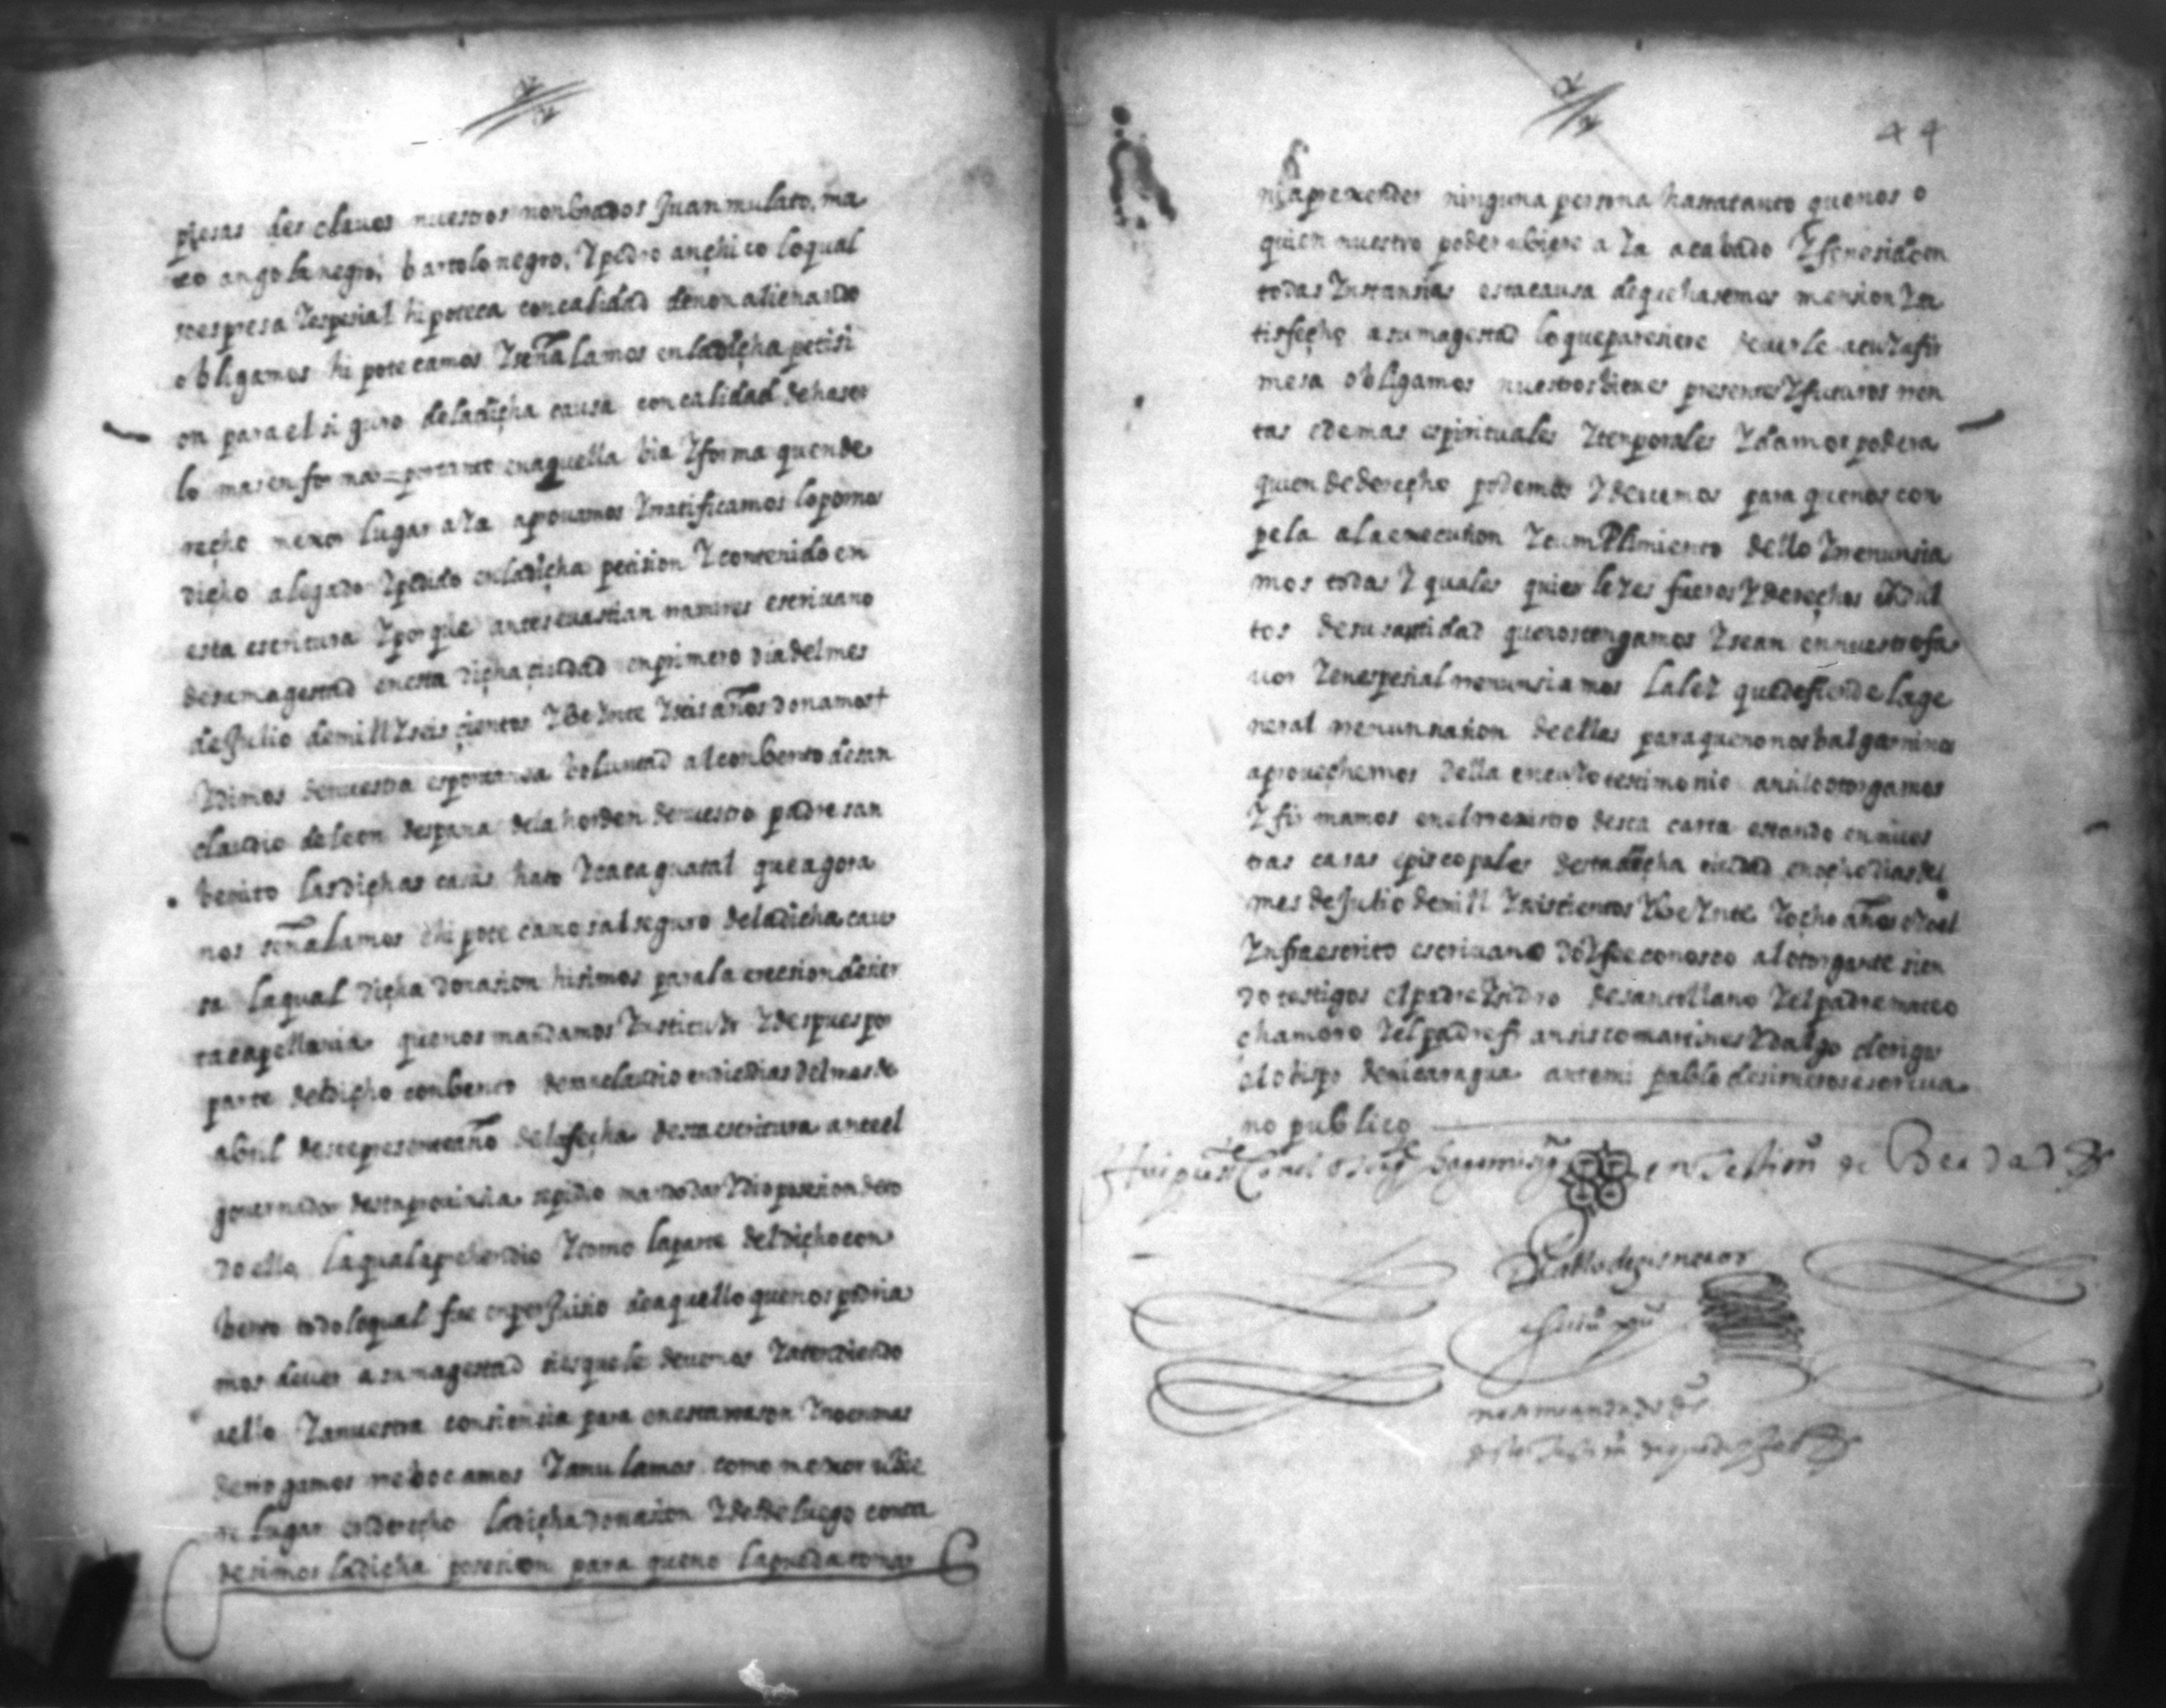 piesas de esclavos nuestros nonbrados Juan mulato, ma
teo angola negro, bartolo negro, Y pedro anchico lo qual
so espresa Y espesial hipoteca con calidad de non alienando
obligamos hipotecamos Y señalamos en la dicha petisi
on para el siguro de la dicha causa con calidad de haser
lo mas en forma = por tanto en aquella bia Y forma que en de
recho mexor lugar aYa aprouamos Y ratificamos lo por nos
dicho alegado Y pedido en la dicha petision Y contenido en
esta escritura Y por que ante seuastian ramires escriuano
de su magestad en esta dicha ciudad en primero dia del mes
de Julio de mill Y seis cientos Y beYnte Y seis años donamos +
Y dimos de nuestra espontanea boluntad al conbento de san
claudio de leon despana de la horden de nuestro padre san
benito las dichas casas hato Y cacaguatal que agora
nos señalamos e hipotecamos al seguro de la dicha cau
sa la qual dicha donasion hisimos para la eresion de sier
ta capellania que nos mandamos Ynstituir Y despues por
parte del dicho conbento de san claudio en dies dias del mes de
abril deste presente año de la fecha desta escritura ante el
gouernador desta prouinsia se pidio mandar Y dio posesion de to
do ello la qual aprehendio Y tomo la parte del dicho con
bento todo lo qual fue en perJuisio de aquello que nos podria
mos deuer a su magestad si es que le deuemos Y atendiendo
a ello Y a nuestra consiensia para en esta rason Y no en mas
derrogamos rebocamos Y anulamos como mexor
lugar en derecho la dicha donasion Y desde luego contra
desimos la dicha posesion para que no la pueda tomar
44
ni aprexender ninguna persona hasta tanto que nos o
quien nuestro poder ubiere aYa acabado Y fenesido en
todas Ynstansias esta causa de que hasemos mension Y sa
tisfecho a su magestad lo que paresiere deuerle a cuYa fir
mesa obligamos nuestros bienes presentes Y futuros rren
tas e demas espirituales Y tenporales Y damos poder a
quien de derecho podemos Y deuemos para que nos con
pela a la execusion Y cumPlimiento dello Y rrenunsia
mos todas Y quales quier leYes fueros Y derechos e Yndul
tos de su santidad que nos tengamos Y sean en nuestro fa
uor Y en espesial rrenunsiamos la leY que defiende la ge
neral rrenunsiasion de ellas para que no nos balgan ni nos
aprouechemos della en cuYo testimonio ansi lo otorgamos
Y firmamos en el rrexistro desta carta estando en nues
tras casas episcopales desta dicha ciudad en ocho dias del
mes de Julio de mill Y seiscientos Y beYnte Y ocho años e Yo el
Ynfraescrito escriuano doY fee conosco al otorgante sien
do testigos el padre Ysidro de santollano Y el padre mateo
chamoro Y el padre fransisco martines Ydalgo clerigos
el obispo de nicaragua ante mi pablo de sisneros escriua
no publico
fui presente hago mi signo en testimº de Berdad
Pablo de zisneros